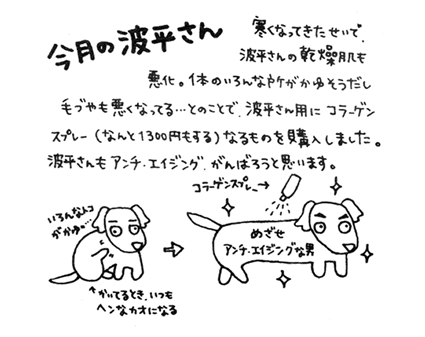 今月の波平さん
寒くなってきたせいで、
波平さんの乾燥肌も
悪化。体のいろんなトケがかゆそうだし
毛づやも悪くなってる…とのことで、波平さん用にコラーゲン
スプレー(なんと1300円もする)なるものを購入しました。
波平さんもアンチ・エイジング、がんばろうと思います。
コラーゲンスプレー→
いろんなトコ
がかゆ…
めざせ
アンチ・エイジングな男
かいてるとき、いつも
ヘンなカオになる